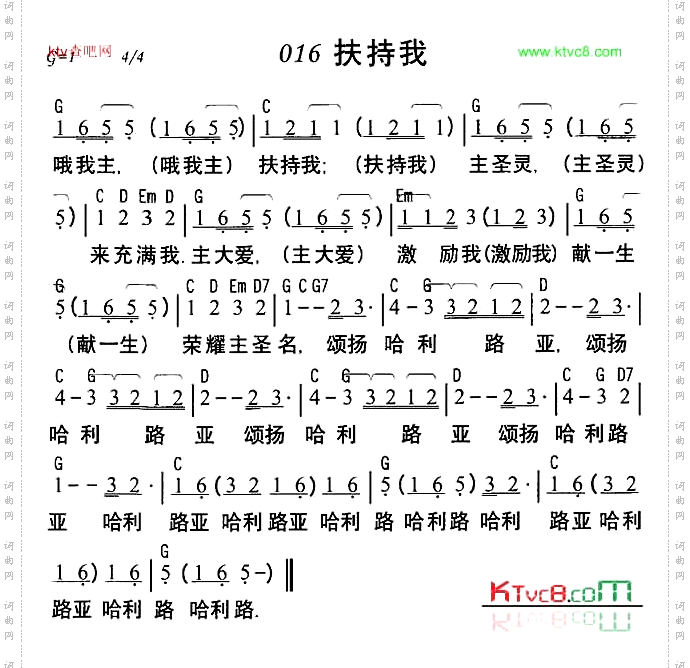 ktv查吧网
G=1 4/4
016 扶持我
www.ktvc8.com
G C G
1 6 5 5 (1 6 5 5) | 1 2 1 1 (1 2 1 1) | 1 6 5 5 (1 6 5
哦我主, (哦我主) 扶持我; (扶持我) 主圣灵, (主圣灵)
C D Em D G Em G
5) | 1 2 3 2 | 1 6 5 5 (1 6 5 5) | 1 1 2 3 (1 2 3) | 1 6 5
来充满我. 主大爱, (主大爱) 激 励我(激励我) 献一生
G C D Em D7 G C G7 C G D
5 (1 6 5 5) | 1 2 3 2 | 1 - - 2 3 · | 4 - 3 3 2 1 2 | 2 - - 2 3 · |
(献一生) 荣耀主圣名, 颂扬 哈 利 路 亚, 颂扬
C G D C G D C G D7
4 - 3 3 2 1 2 | 2 - - 2 3 · | 4 - 3 3 2 1 2 | 2 - - 2 3 · | 4 - 3 2 |
哈 利 路 亚 颂扬 哈 利 路 亚 颂扬 哈 利路
G C G C
1 - - 3 2 · | 1 6 (3 2 1 6) 1 6 | 5 (1 6 5) 3 2 · | 1 6 (3 2
亚 哈利 路亚 哈利路亚 哈利 路 哈利路 哈利 路亚 哈利
G
1 6) 1 6 | 5 (1 6 5 -) ‖
路亚 哈利 路 哈利路.
KTvc8.com
词曲网